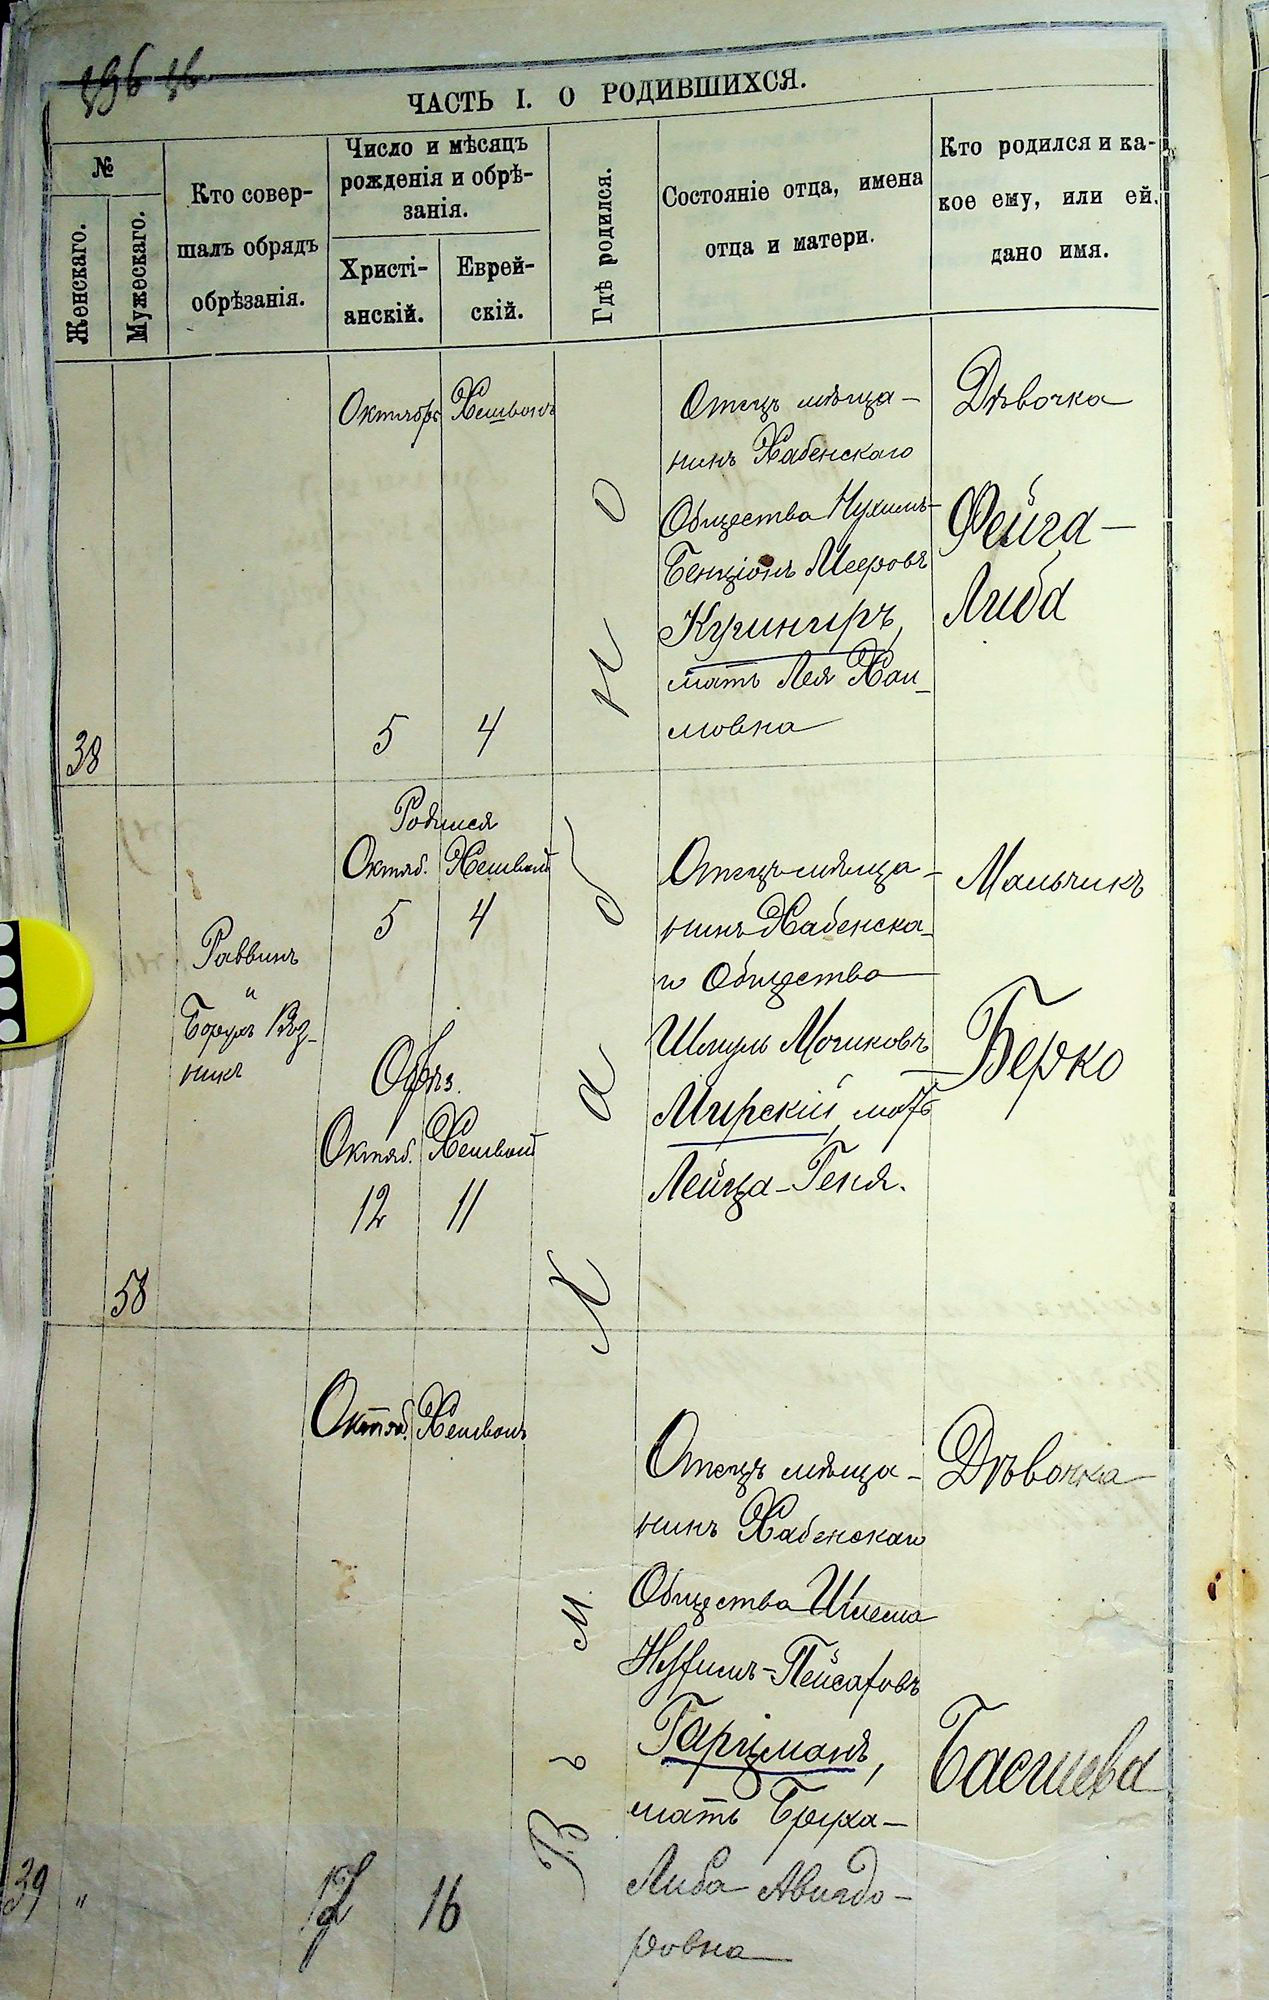 ЧАСТЬ I. О РОДИВШИХСЯ.
№
Женскаго.
Мужескаго.
Кто совер-
шалъ обрядъ
обрѣзанія.
Число и мѣсяцъ
рожденія и обрѣ-
занія.
Христі-
анскій.
Еврей-
скій.
Гдѣ родился.
Состояніе отца, имена
отца и матери.
Кто родился и ка-
кое ему, или ей,
дано имя.
38
Октябрь
5
Хешванъ
4
Отецъ мѣща-
нинъ Хабенскаго
Общества Нухимъ-
Бенціонъ Мееровъ
мать Лея Хаи-
мовна
Дѣвочка
Фейга-
Либа
58
Раввинъ
и
Борухъ Воз-
никъ
Родился
Октяб. Хешван
5 4
Обрѣз.
Октяб. Хешван
12 11
Отецъ мѣща-
нинъ Хабенска-
го Общества
Шмуль Мошковъ
Мирскій, мать
Лейца-Геня.
Мальчикъ
Берко
39 "
Октяб. Хешванъ
17 16
Отецъ мѣща-
нинъ Хабенскаго
Общества Шлема
Нухимъ-Пейсаховъ
Гарцманъ,
мать Бруха-
Либа Авигдо-
ровна
Дѣвочка
Басшева
Въ м. Хабно